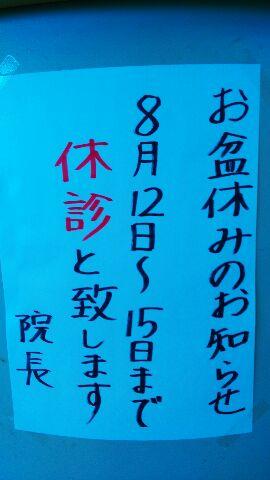 お盆休みのお知らせ
8月12日～15日まで
休診と致します
院長